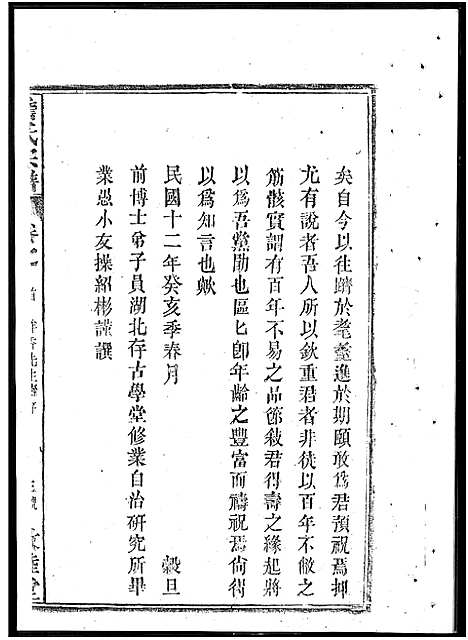 矣自今以往躋於耄耋逸於期頤敢爲君預祝焉抑
尤有說者吾人所以欽重君者非徒以百年不敝之
筋骸實謂有百年不易之品節敍君得壽之緣起將
以爲吾黨勖也區匕卽年齡之豐富而禱祝焉尙得
以爲知言也歟
民國十二年癸亥季春月 穀旦
前博士弟子員湖北存古學堂修業自治硏究所畢
業愚小友操紹彬謹譔
氏宗譜 卷